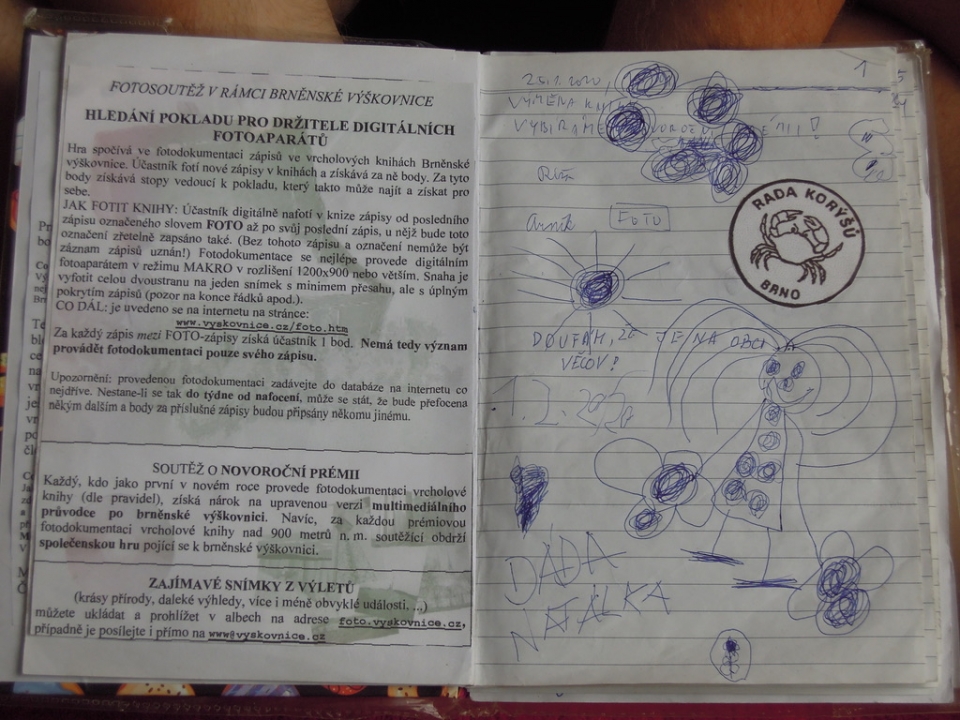 FOTOSOUTĚŽ V RÁMCI BRNĚNSKÉ VÝŠKOVNICE
HLEDÁNÍ POKLADU PRO DRŽITELE DIGITÁLNÍCH
FOTOAPARÁTŮ
Hra spočívá ve fotodokumentaci zápisů ve vrcholových knihách Brněnské
výškovnice. Účastník fotí nové zápisy v knihách a získává za ně body. Za tyto
body získává stopy vedoucí k pokladu, který takto může najít a získat pro
sebe.
JAK FOTIT KNIHY: Účastník digitálně nafotí v knize zápisy od posledního
zápisu označeného slovem FOTO až po svůj poslední zápis, u nějž bude toto
označení zřetelně zapsáno také. (Bez tohoto zápisu a označení nemůže být
záznam zápisů uznán!) Fotodokumentace se nejlépe provede digitálním
fotoaparátem v režimu MAKRO v rozlišení 1200x900 nebo větším. Snaha je
vyfotit celou dvoustranu na jeden snímek s minimem přesahu, ale s úplným
pokrytím zápisů (pozor na konce řádků apod.).
CO DÁL: je uvedeno se na internetu na stránce:
www.vyskovnice.cz/foto.htm
Za každý zápis mezi FOTO-zápisy získá účastník 1 bod. Nemá tedy význam
provádět fotodokumentaci pouze svého zápisu.
Upozornění: provedenou fotodokumentaci zadávejte do databáze na internetu co
nejdříve. Nestane-li se tak do týdne od nafocení, může se stát, že bude přefocena
někým dalším a body za příslušné zápisy budou připsány někomu jinému.
SOUTĚŽ O NOVOROČNÍ PRÉMII
Každý, kdo jako první v novém roce provede fotodokumentaci vrcholové
knihy (dle pravidel), získá nárok na upravenou verzi multimediálního
průvodce po brněnské výškovnici. Navíc, za každou prémiovou
fotodokumentaci vrcholové knihy nad 900 metrů n. m. soutěžící obdrží
společenskou hru pojící se k brněnské výškovnici.
ZAJÍMAVÉ SNÍMKY Z VÝLETŮ
(krásy přírody, daleké výhledy, více i méně obvyklé události. ..,)
můžete ukládat a prohlížet v albech na adrese foto.vyskovnice.cz,
případně je posílejte i přímo na www@vyskovnice.cz
1
25.1.2020,
VÝMĚNA
FOTO
RADA KORÝŠŮ
BRNO
DOUFÁM, ŽE JE NA OBĚI
VĚCOV!
1.2.2020
DÁDA
NATÁLKA